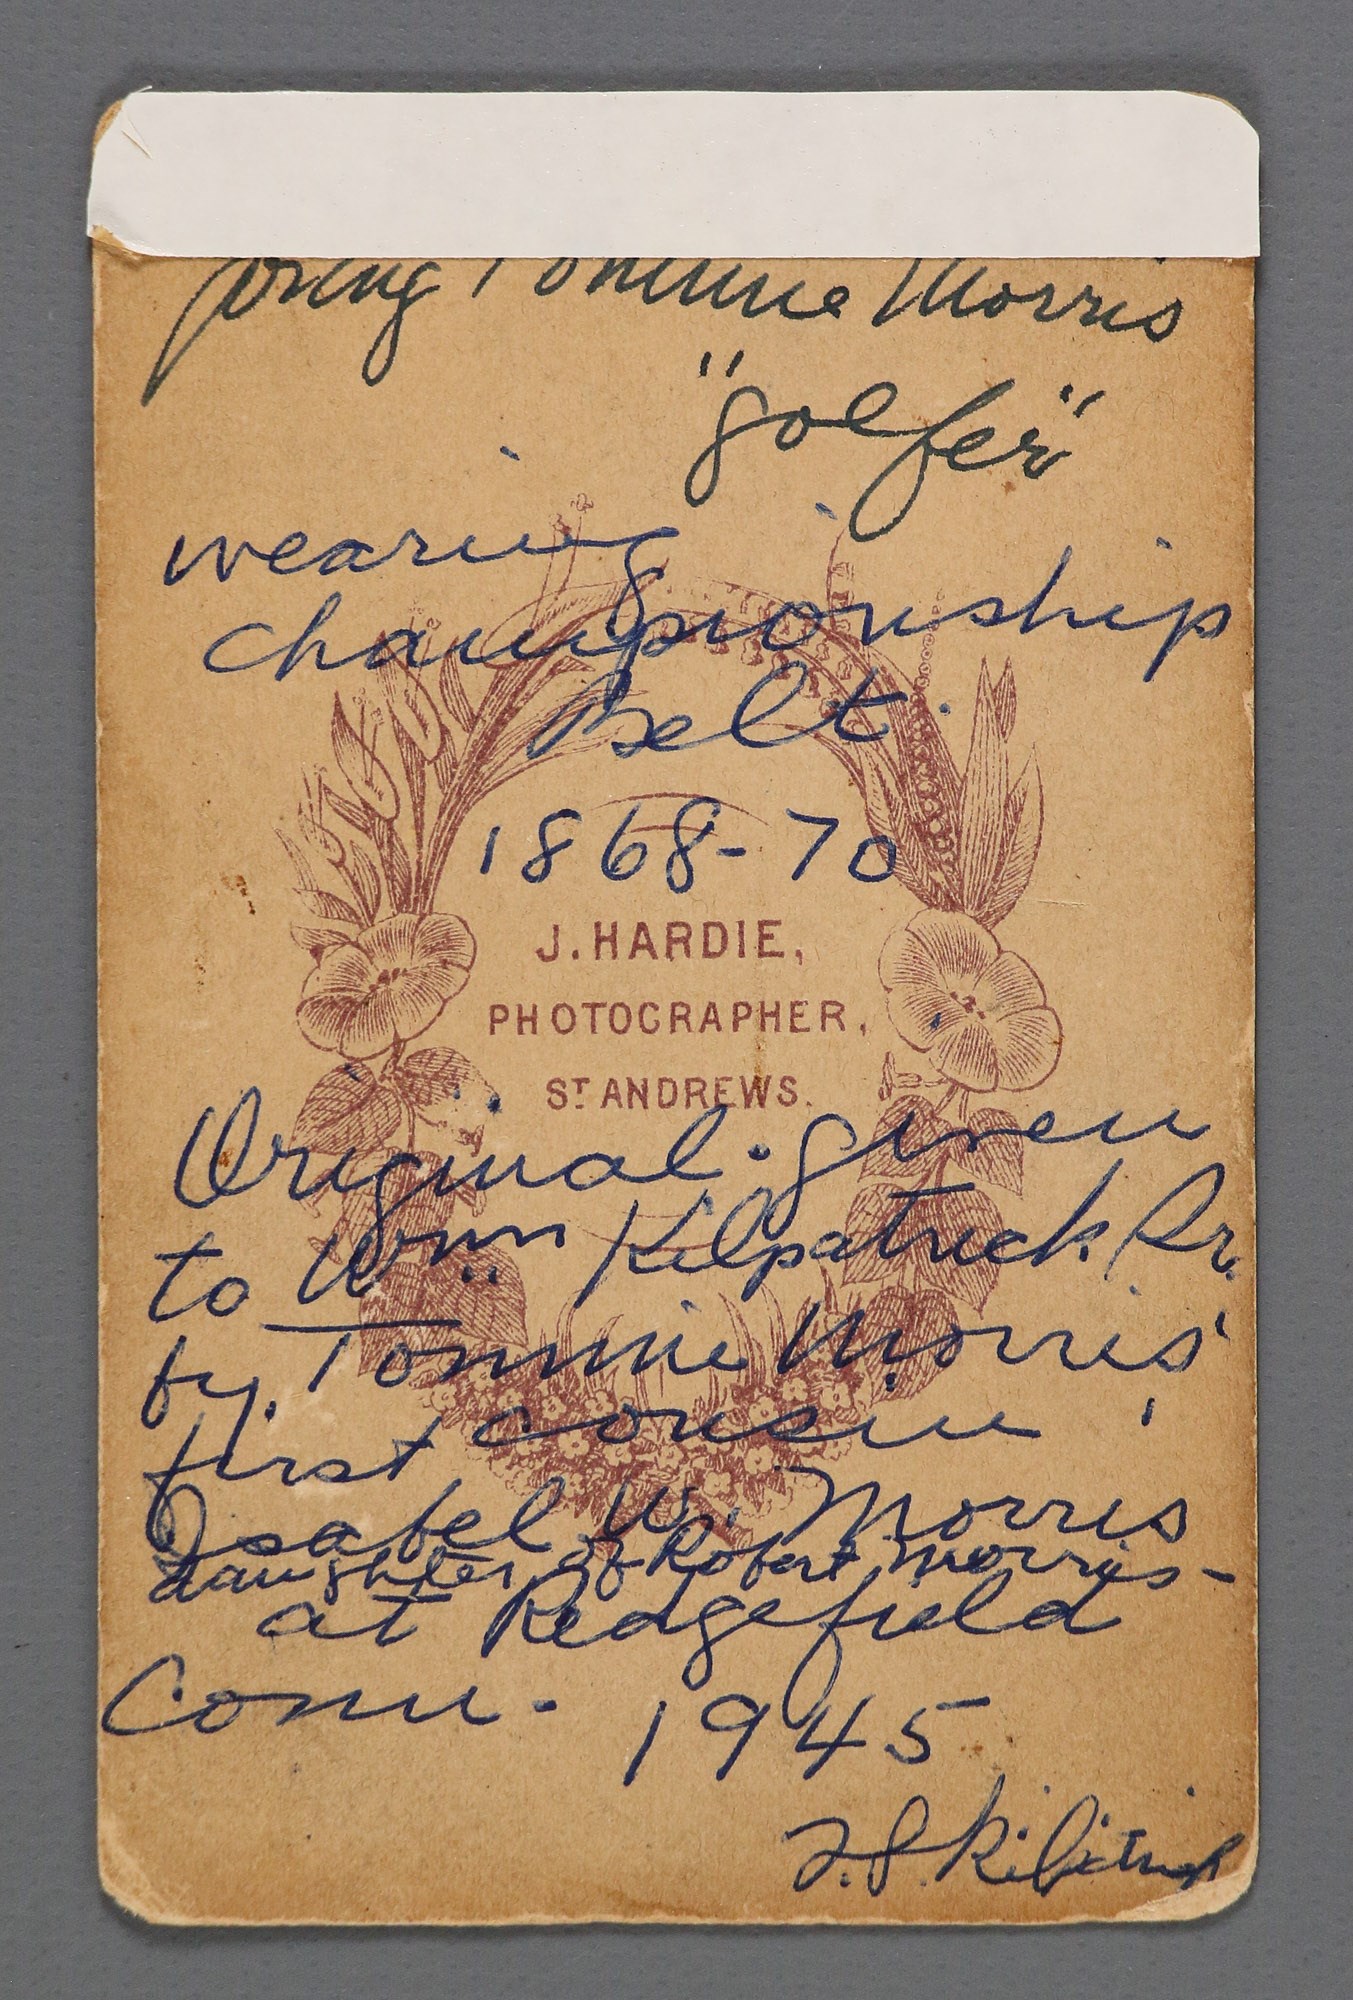 young Tommie Morris
"golfer"
wearing
championship
Belt.
1868-70
J. HARDIE,
PHOTOGRAPHER,
ST ANDREWS.
Original given
to Wm Kilpatrick Sr.
by Tommie Morris'
first cousin,
Isabel W. Morris
daughter of Robert Morris-
at Redgefield
Conn. 1945
Kilpatrick